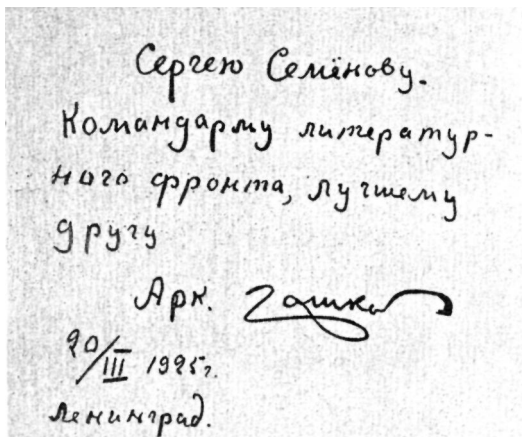 Сергею Семёнову.
Командарму литератур-
ного фронта, лучшему
другу
Арк.
20/III 1925г.
Ленинград.